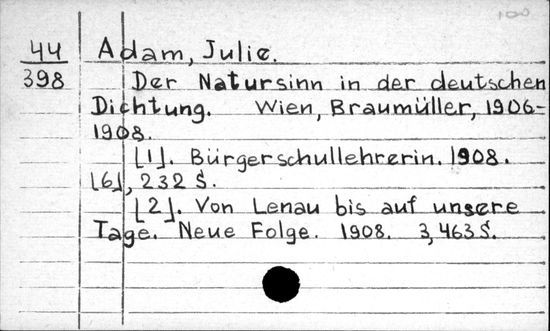 100
44 Adam, Julie.
398 Der Natursinn in der deutschen
Dichtung. Wien, Braumüller, 1906-
1908.
[1]. Bürgerschullehrerin. 1908.
[6], 232 S.
[2]. Von Lenau bis auf unsere
Tage. Neue Folge. 1908. 3, 463 S.